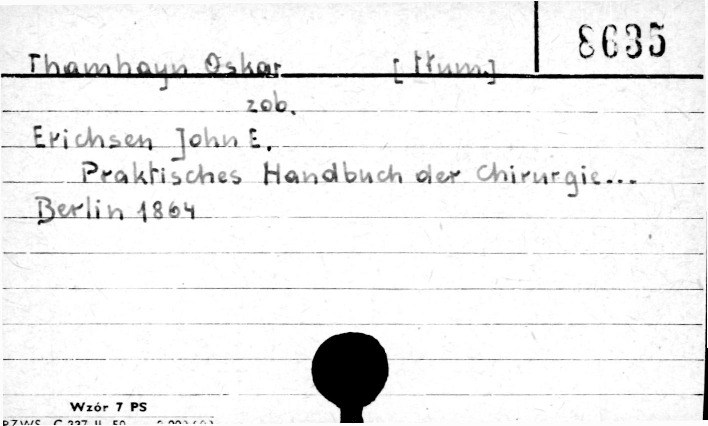 8635
Thamhayn Oskar [tłum.]
zob.
Erichsen John E.
Praktisches Handbuch der Chirurgie...
Berlin 1864
Wzór 7 PS